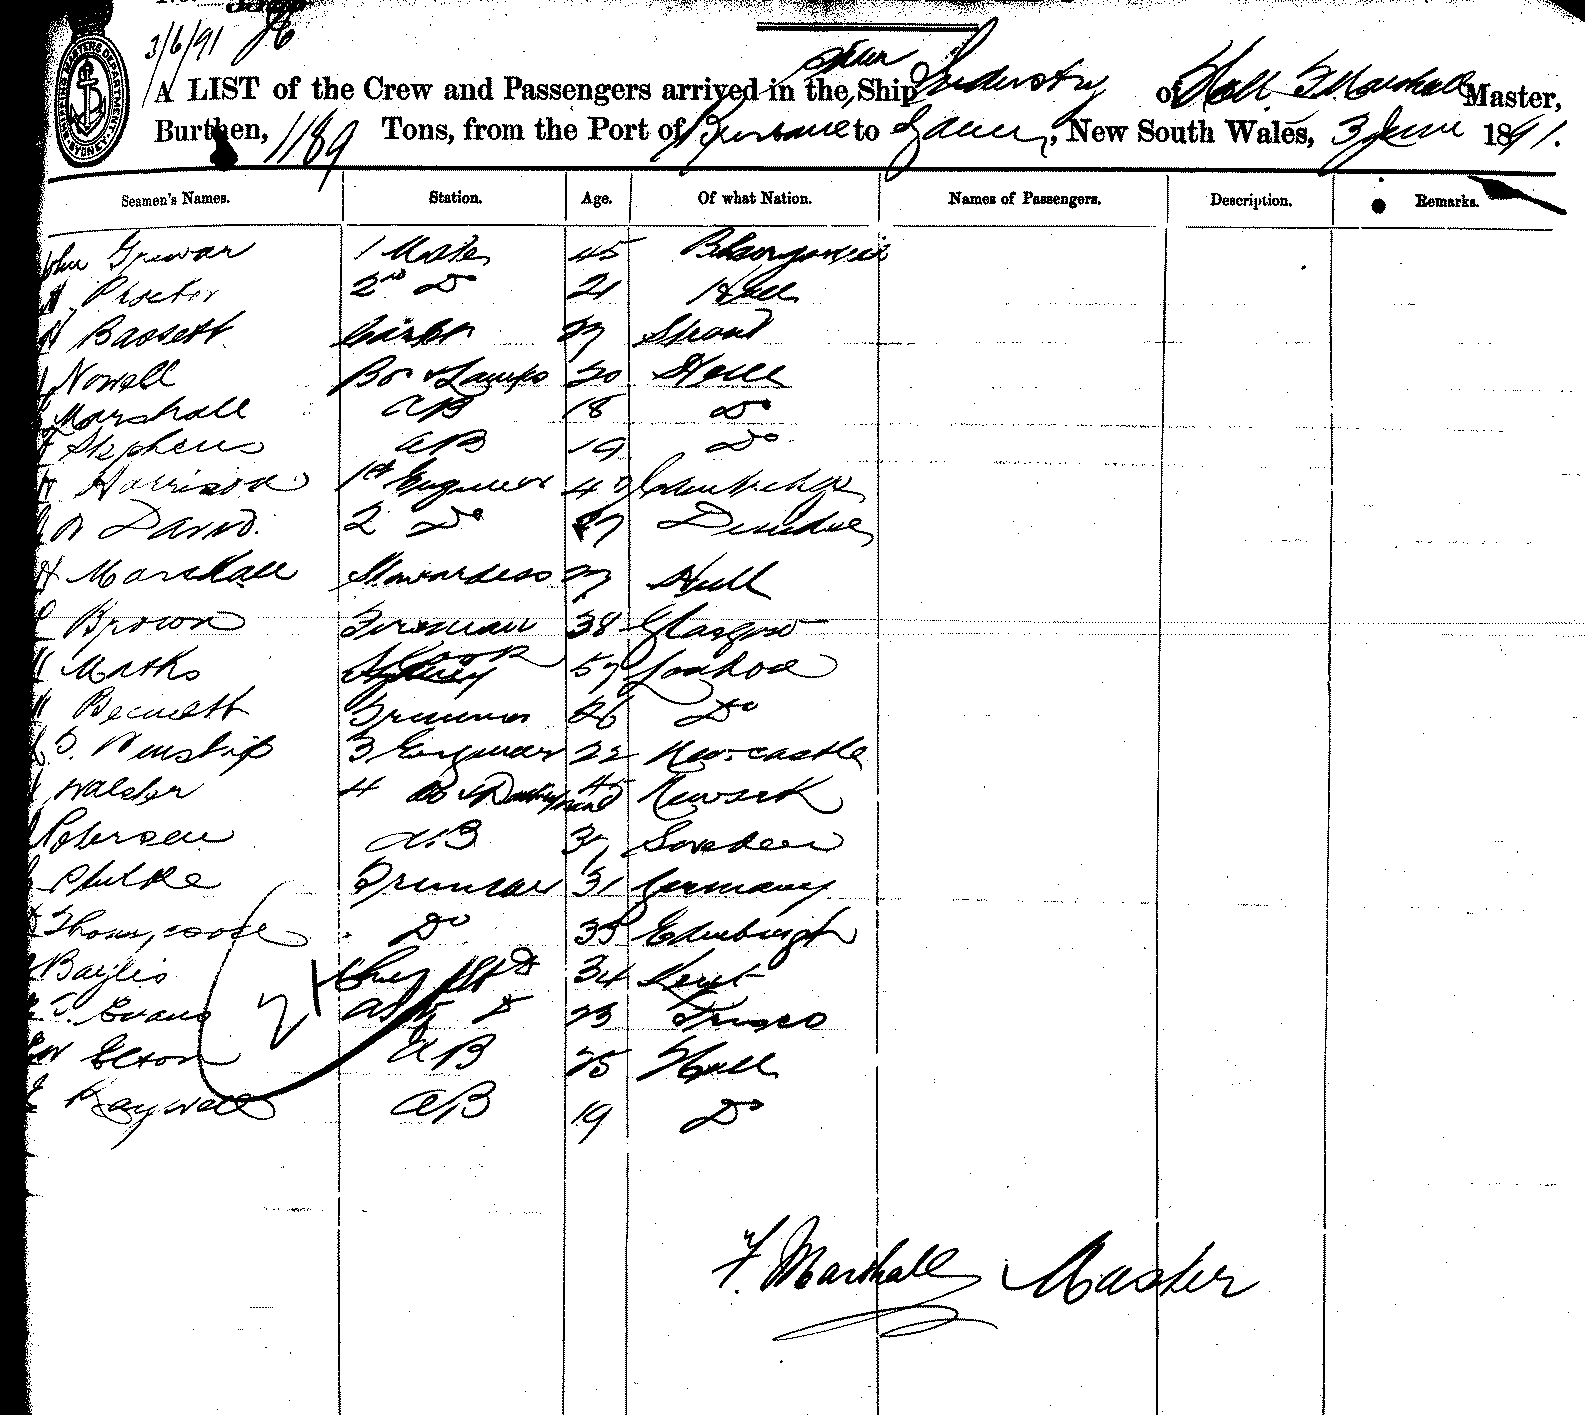 3/6/91
A LIST of the Crew and Passengers arrived in the Ship Industry of Hull F Marshall Master,
Burthen, 1189 Tons, from the Port of Brisbane to Sydney, New South Wales, 3 June 1891.
Seamen's Names. Station. Age. Of what Nation. Names of Passengers. Description. Remarks.
John Grewar 1 Mate 45
Proctor 2nd Do 21 Hull
Bassett 27 Stroud
Nowell Bos & Lamps 20 Hull
Marshall AB 18 Do
F Stephens AB 19 Do
H Harrison 1st Engineer 47 Cambridge
David 2 Do 27 Dundee
H Marshall Stewardess 27 Hull
Brown Fireman 38 Glasgow
Marks Cook 57 London
Bennett Fireman 26 Do
Winship 3 Engineer 22 Newcastle
Walster 4 Do & Donkeyman 45 Newark
Petersen A.B 37 Sweden
Fireman 31 Germany
Thompson Do 35 Edinburgh
Baylis Chief Std 34 Kent
T. Evans Asst Do 23 Frisco
W Elton AB 25 Hull
Kaywell AB 19 Do
21
F. Marshall Master